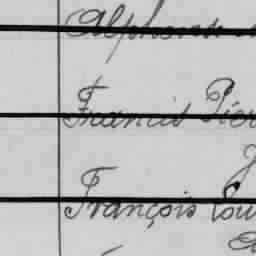 Alphonse
Francis Pier
J
François Lou